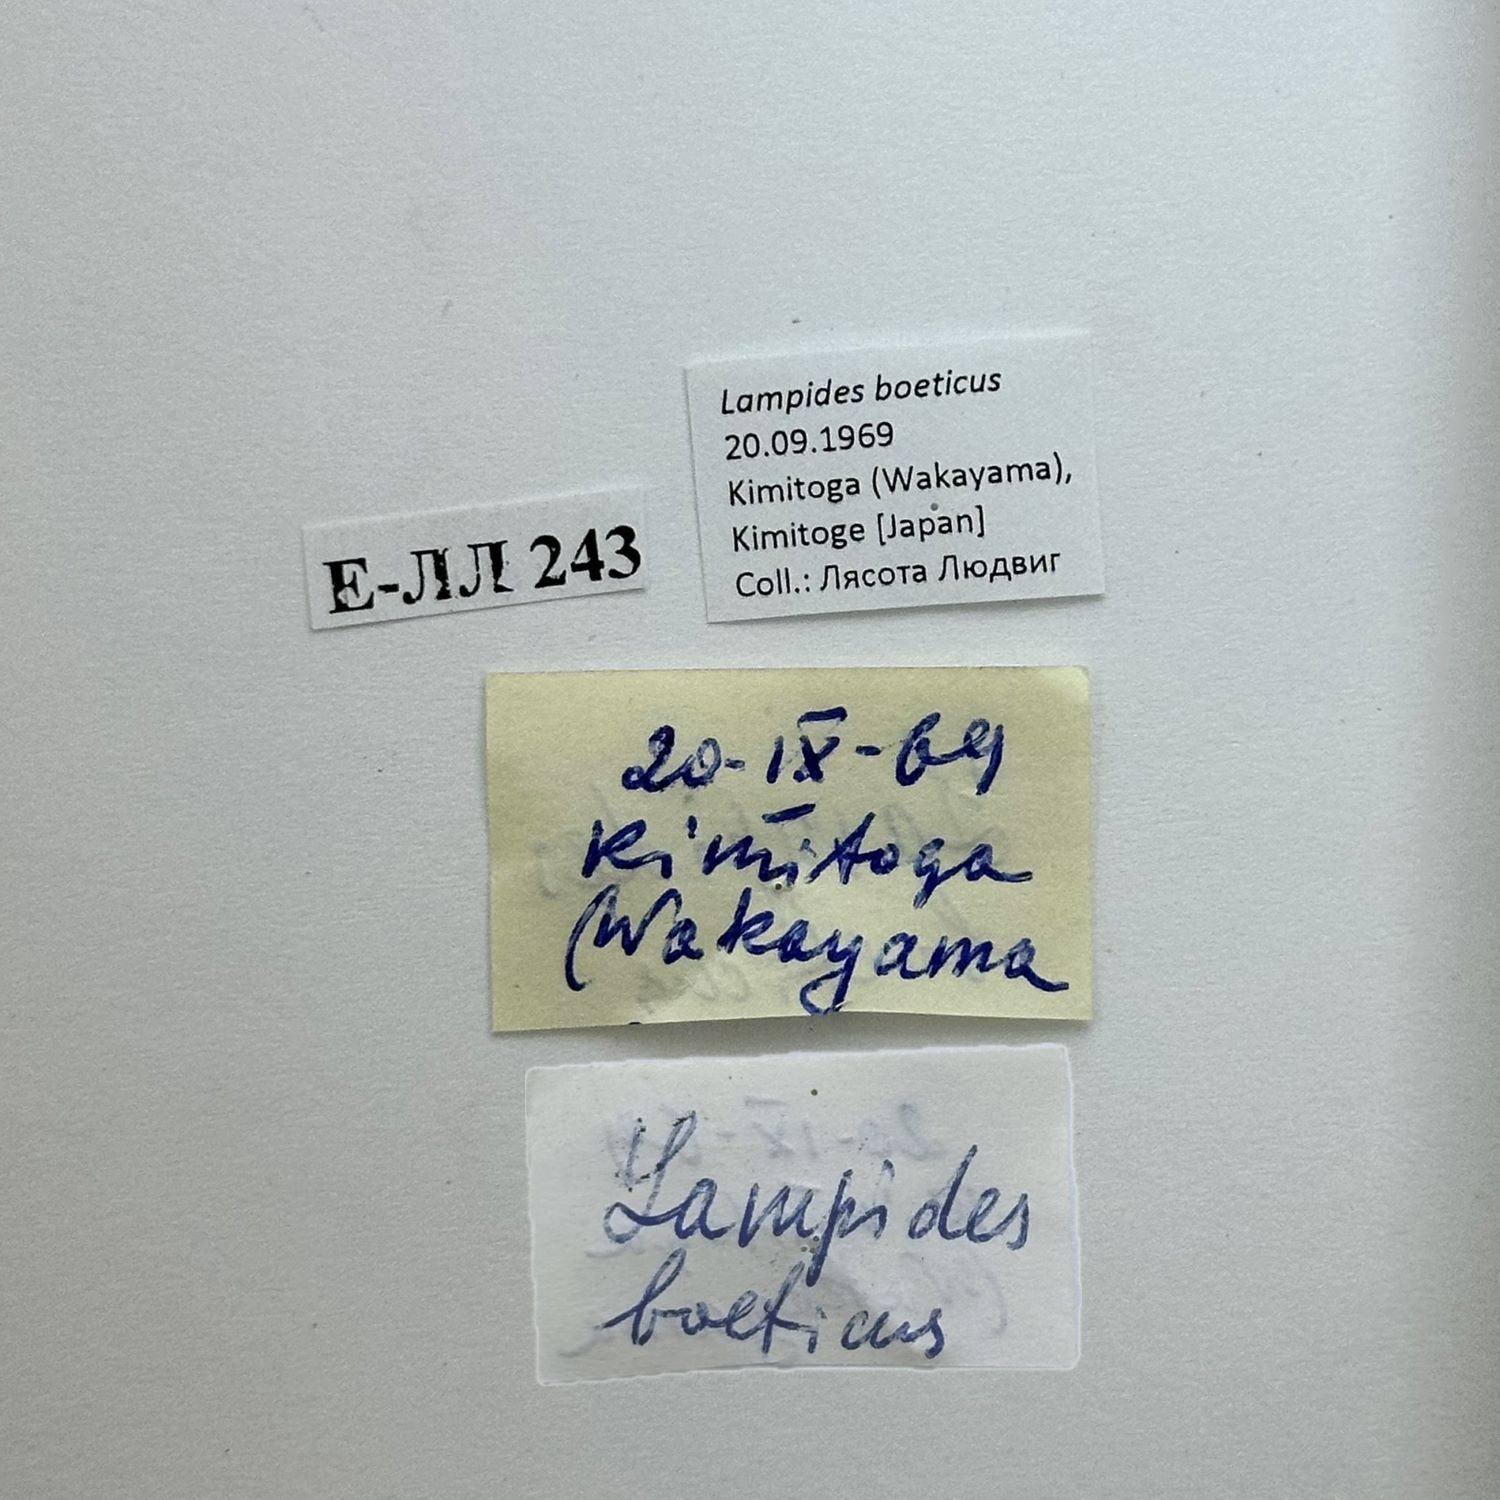 Lampides boeticus
20.09.1969
Kimitoga (Wakayama),
Kimitoge [Japan]
Coll.: Лясота Людвиг
Е-ЛЛ 243
20-IX-69
Kimitoga
(Wakayama
Lampides
boeticus